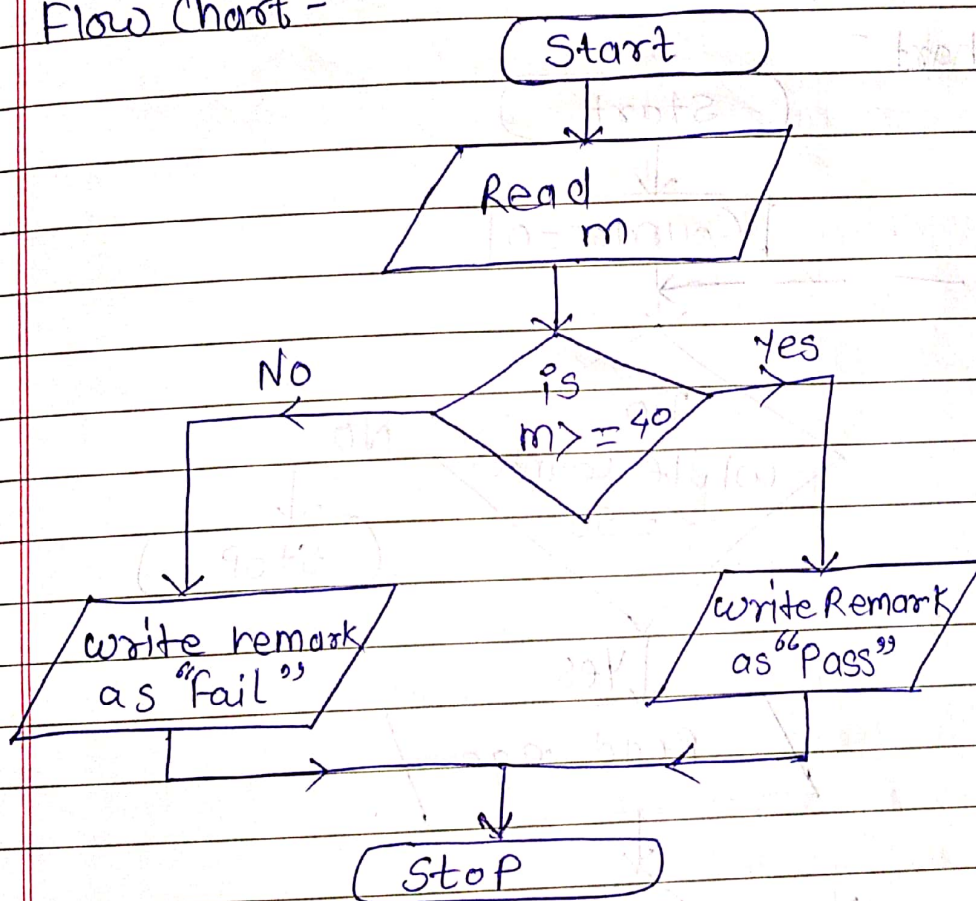 Flow Chart -
Start
Read
m
No
is
m>=40
Yes
write remark
as "fail"
write Remark
as "Pass"
Stop